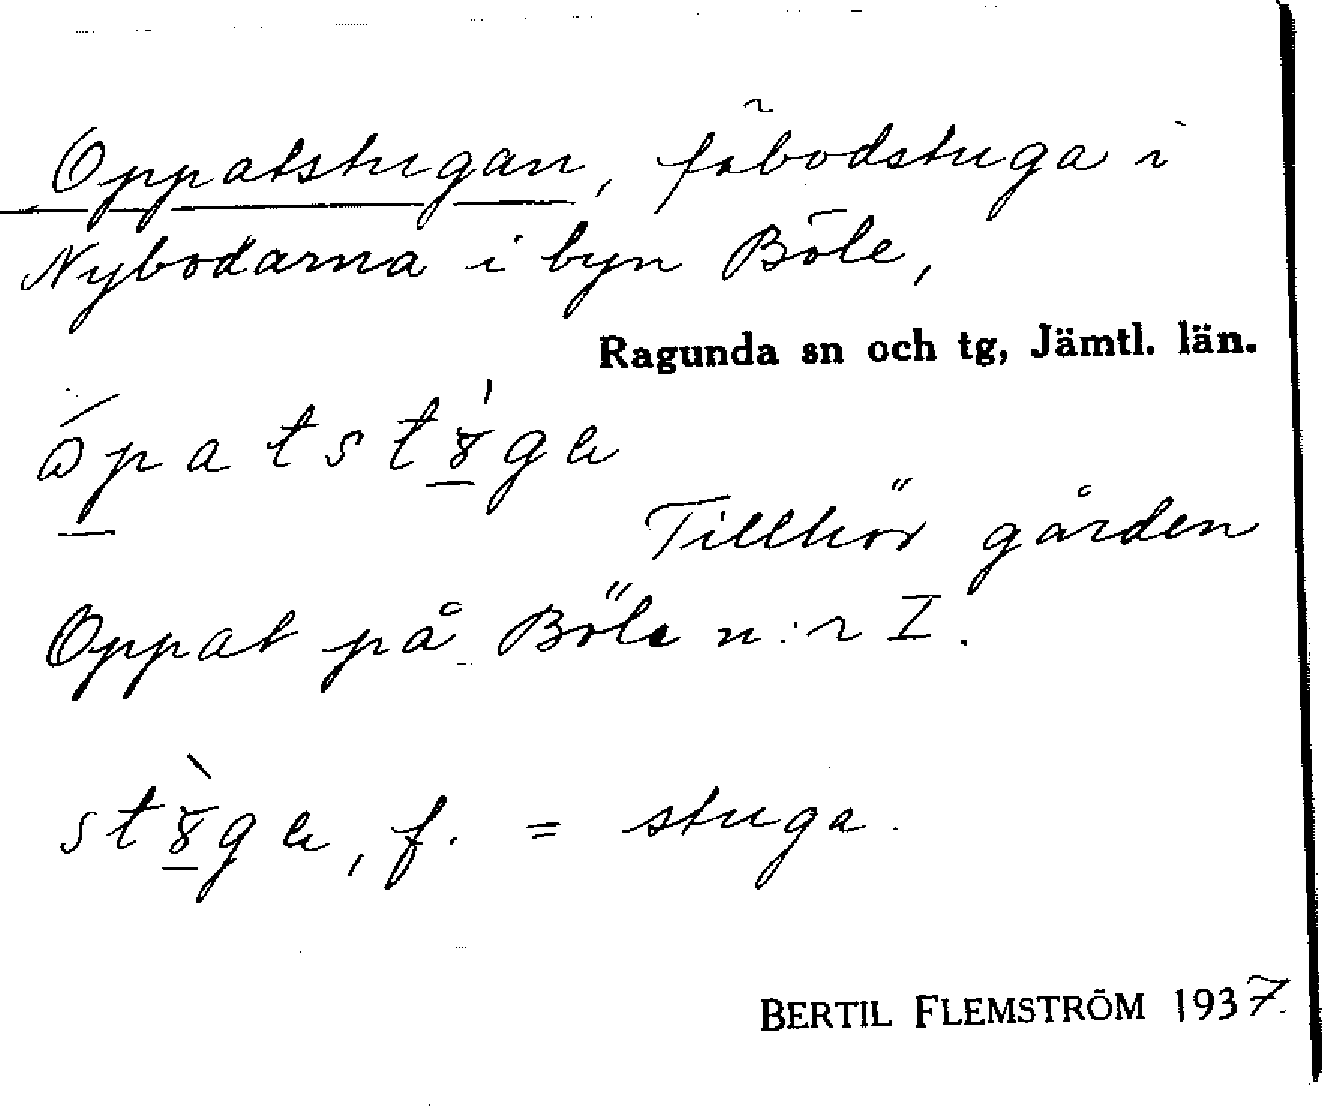 Oppatstugan, fäbodstuga i
Nybodarna i byn Böle,
Ragunda sn och tg, Jämtl. län.
Tillhör gården
Oppat på Böle n:r I.
f. = stuga.
BERTIL FLEMSTRÖM 1937